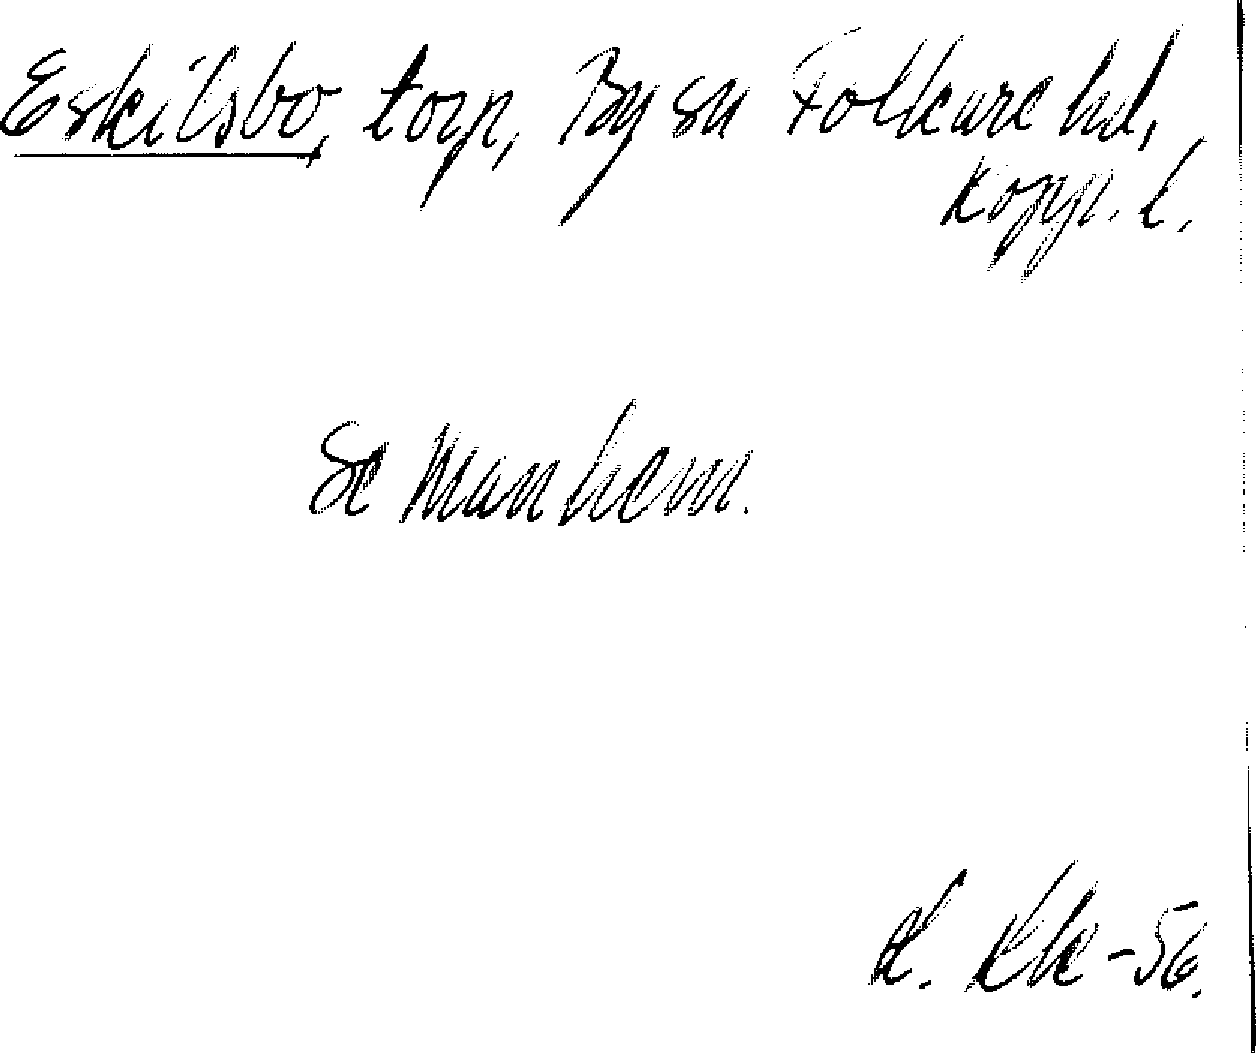 Eskilsbo, torp, By sn Folkare hd,
Kopp. l.
Se Manhem.